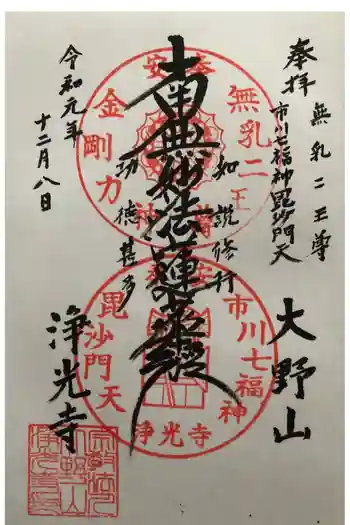 奉拝
無乳二王尊
市川七福神毘沙門天
大野山
南無妙法蓮華経
如説修行
功徳甚多
令和元年
十二月八日
浄光寺
無乳二王
金剛力
安産
市川七福神
毘沙門天
浄光寺